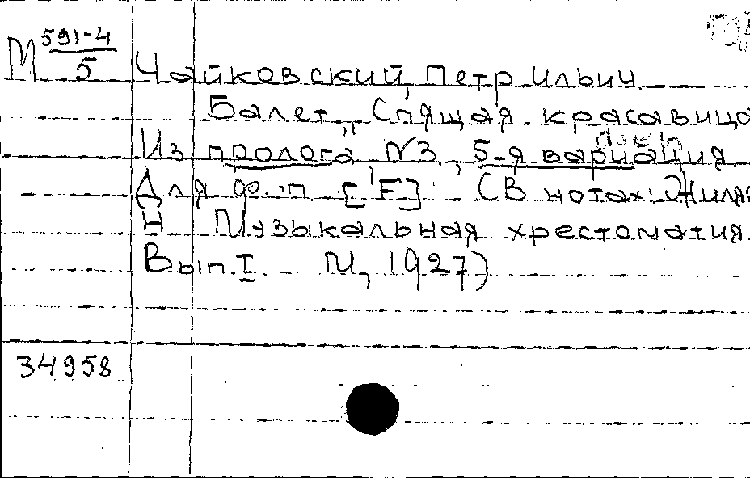 М 591-4/5
Чайковский, Петр Ильич.
Балет „Спящая красавица"
Из пролога №3, 5-я вариация
Для ф.-п. [F] (В нотах: Жиляе
Н. Музыкальная хрестоматия.
Вып. I. М., 1927)
34958